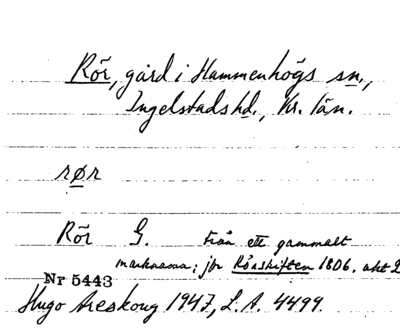 Rör, gård i Hammenhögs sn.,
Ingelstads hd., Kr. län.
rør
Rör G. från ett gammalt
marknamn; jfr Rörskiften 1806. akt 2
Nr 5443
Hugo Areskoug 1947, L.A. 4499.